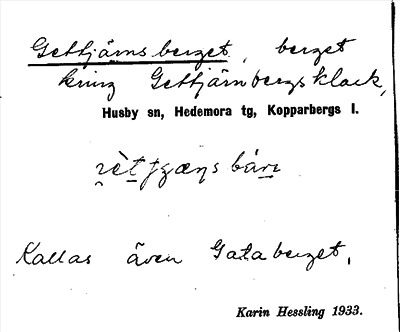 Gettjärnsberget, berget
kring Gettjärnbergsklack,
Husby sn, Hedemora tg, Kopparbergs l.
Kallas även Gataberget.
Karin Hessling 1933.